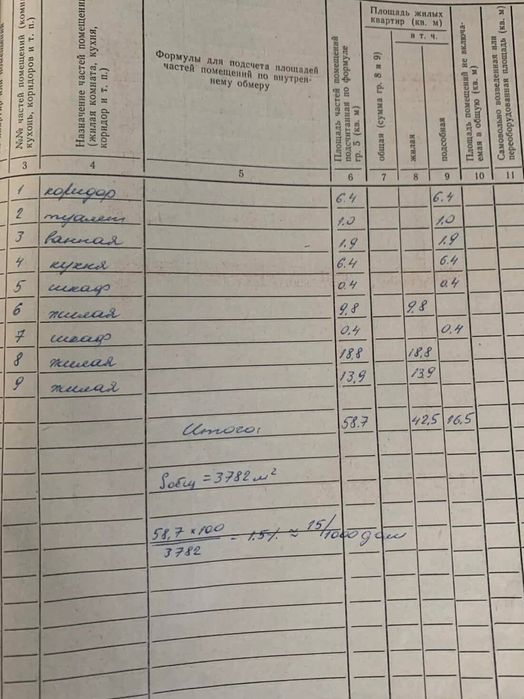 №№ частей помещений (комнат, кухонь, коридоров и т. п.)
Назначение частей помещений (жилая комната, кухня, коридор и т. п.)
Формулы для подсчета площадей
частей помещений по внутрен-
нему обмеру
Площадь частей помещений подсчитанная по формуле гр. 5 (кв. м)
Площадь жилых
квартир (кв. м)
общая (сумма гр. 8 и 9)
в т. ч.
жилая
подсобная
Площадь помещений не включа-емая в общую (кв. м)
Самовольно возведенная или переоборудованная площадь (кв. м)
3 4 5 6 7 8 9 10 11
1 коридор 6.4 6.4
2 туалет 1.0 1.0
3 ванная 1.9 1.9
4 кухня 6.4 6.4
5 шкаф 0.4 0.4
6 жилая 9,8 9,8
7 шкаф 0.4 0.4
8 жилая 18,8 18,8
9 жилая 13,9 13,9
Итого: 58.7 42,5 16,5
Sобщ = 3782 м²
58,7 × 100
3782
= 1.5% ≈ 15/1000 доли